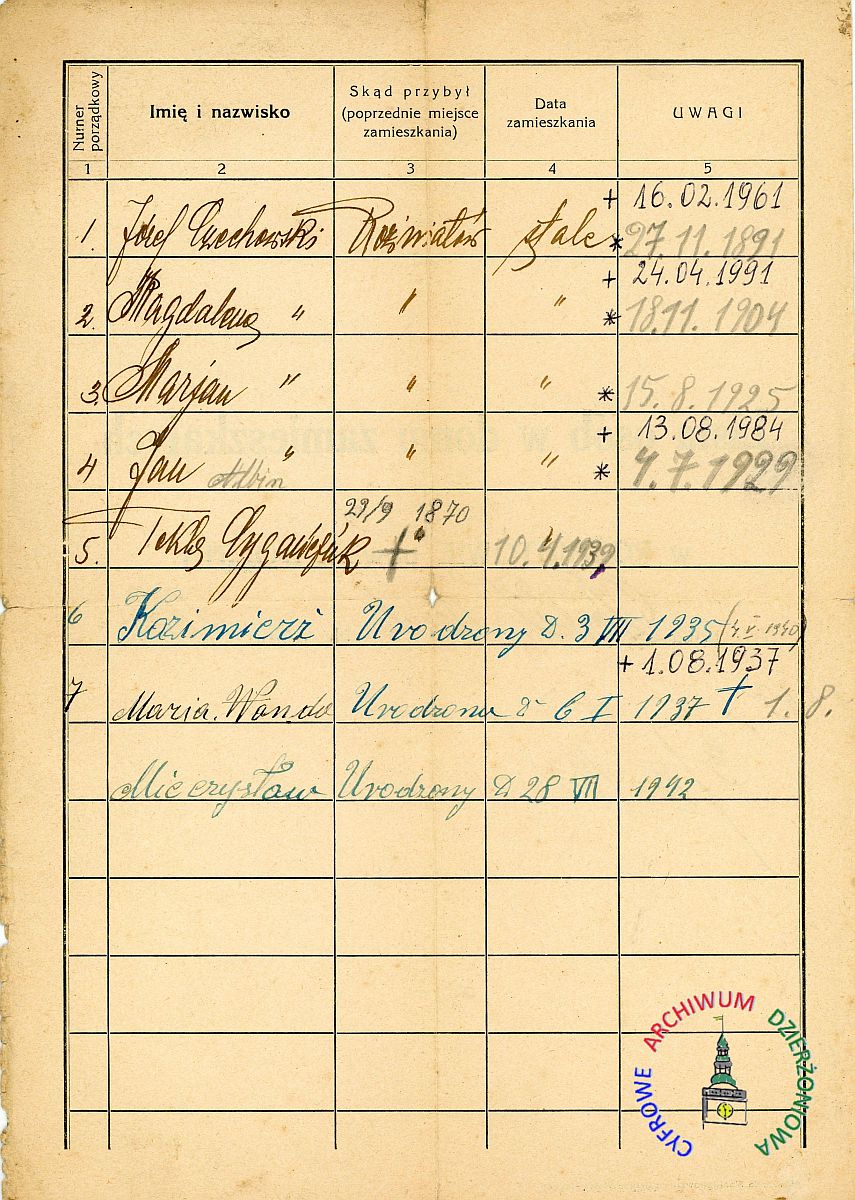 Numer porządkowy
Imię i nazwisko
Skąd przybył (poprzednie miejsce zamieszkania)
Data zamieszkania
UWAGI
1 2 3 4 5
+ 16.02.1961
1. Józef Czechowski Rożniatów stale * 27.11.1891
+ 24.04.1991
2. Magdalena " " " * 18.11.1904
3. Marjan " " " * 15.8.1925
+ 13.08.1984
4 Jan Albin " " " * 4.7.1929
29/9 1870
5. Tekla + " 10.4.1939
6 Kazimierz Urodzony D. 3 VIII 1935 (4.V.1940)
+ 1.08.1937
7 Maria. Wanda Urodzona d 6 I 1937 + 1.8.
Mieczysław Urodzony D 28 VII 1942
CYFROWE ARCHIWUM DZIERŻONIOWA